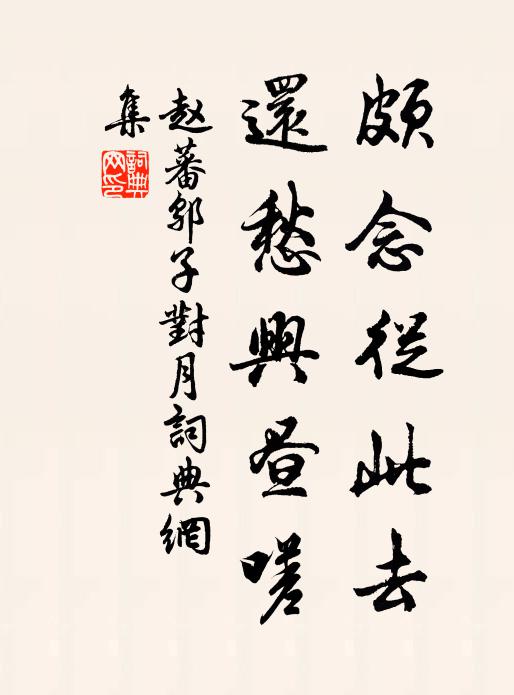 頗念從此去
還愁興昼嗟
赵蕃鄔子對月詞典網
集
詞典
网印